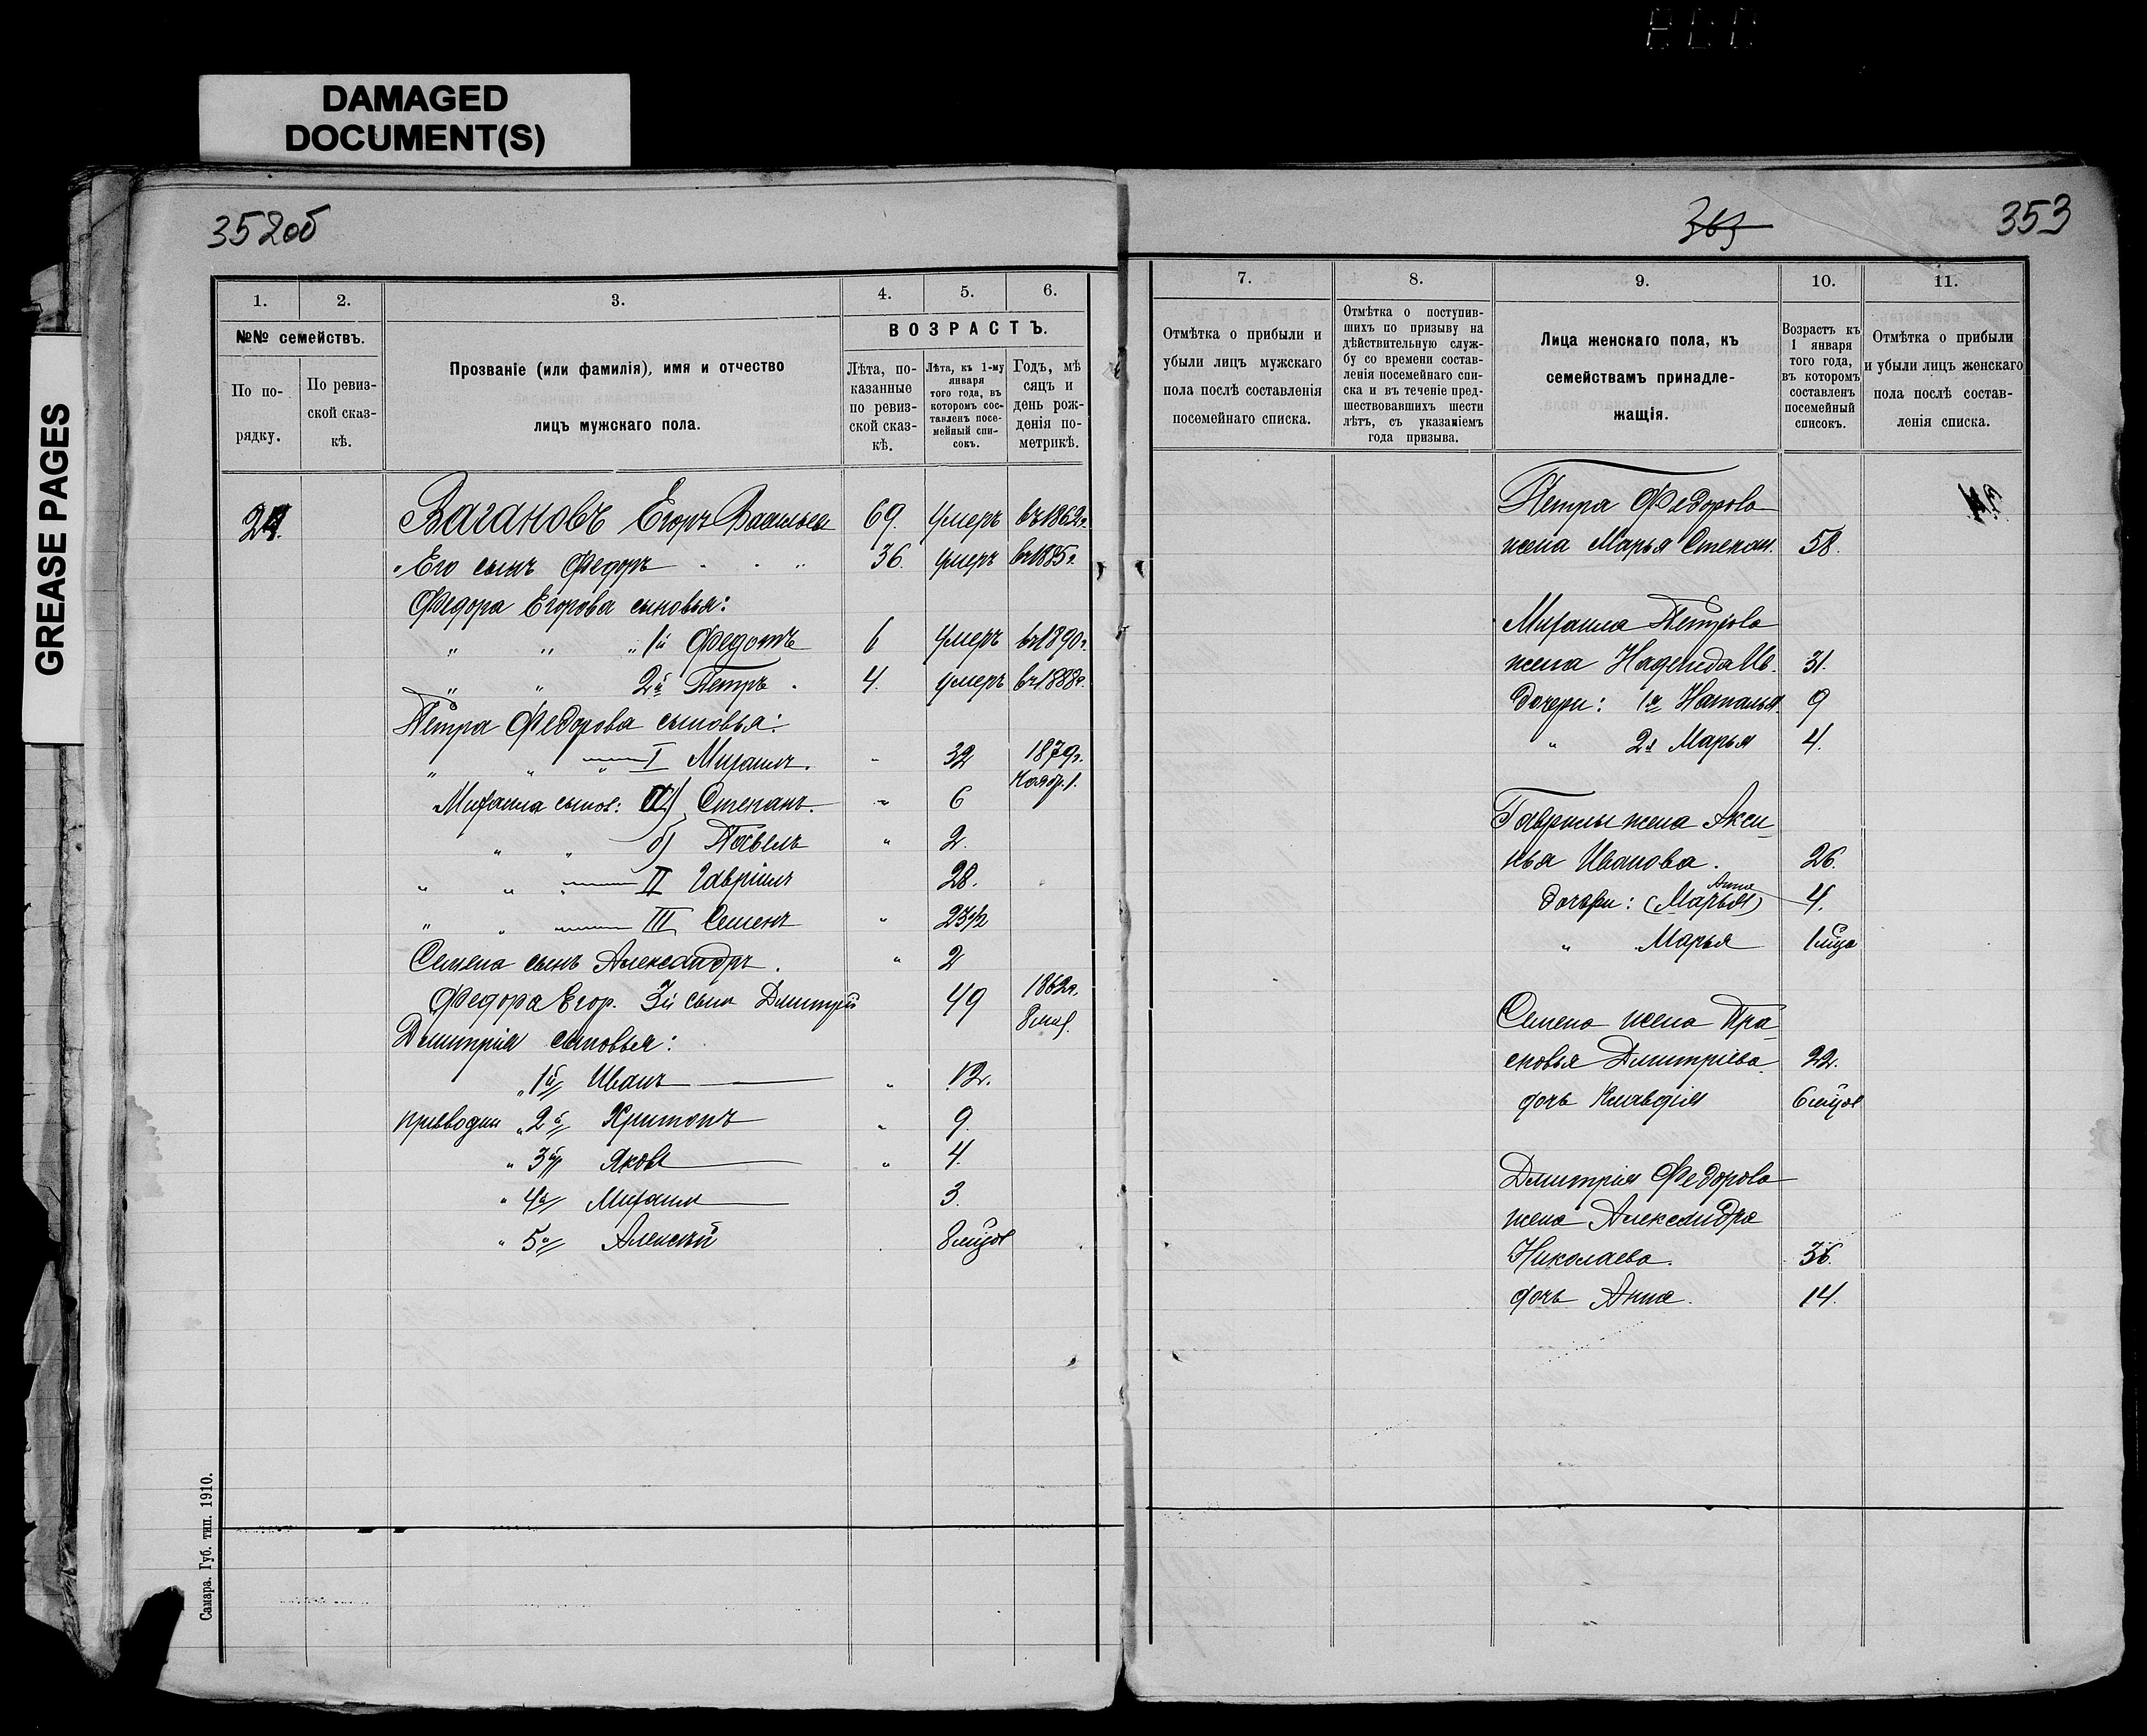 DAMAGED
DOCUMENT(S)
GREASE PAGES
352об
1.
2.
3.
4.
5.
6.
№№ семействъ.
ВОЗРАСТЪ.
По по-
рядку.
По ревиз-
ской сказ-
кѣ.
Прозваніе (или фамилія), имя и отчество
лицъ мужскаго пола.
Лѣта, по-
казанные
по ревиз-
ской сказ-
кѣ.
Лѣта, къ 1-му
января
того года, въ
которомъ сос-
тавленъ посе-
мейный спи-
сокъ.
Годъ, мѣ
сяцъ и
день рож-
денія по-
метрикѣ.
Вагановъ Егоръ Васильев 69. умеръ въ 1862г.
Его сынъ Федоръ 36. умеръ въ 1885г.
Федора Егорова сыновья:
" " " 1й Федотъ 6 умеръ въ 1890г.
" " 2й Петръ 4. умеръ въ 1888г.
Петра Федорова сыновья:
" " " I Михаилъ. " 32 1879г.
Ноябр. 1.
Михаила сынов: а) Степанъ. " 6
" " б) Павелъ " 2.
" " " II Гавріилъ 28.
" " " III Семенъ " 23½
Семена сынъ Александръ. " 2
Федора Егор. 3й сын Дмитрій 49 1862г.
Дмитрія сыновья:
" 1й Иванъ " 12.
"2й Харитонъ " 9.
" 3й Яковъ " 4.
" 4й Михаил 3.
" 5й Алексѣй 8 мѣсяц
Самара. Губ. тип. 1910.
363
353
7.
8.
9.
10.
11.
Отмѣтка о прибыли и
убыли лицъ мужскаго
пола послѣ составленія
посемейнаго списка.
Отмѣтка о поступив-
шихъ по призыву на
дѣйствительную служ-
бу со времени состав-
ленія посемейнаго спи-
ска и въ теченіе пред-
шествовавшихъ шести
лѣтъ, съ указаніемъ
года призыва.
Лица женскаго пола, къ
семействамъ принадле-
жащія.
Возрастъ къ
1 января
того года,
въ которомъ
составленъ
посемейный
списокъ.
Отмѣтка о прибыли
и убыли лицъ женскаго
пола послѣ состав-
ленія списка.
Петра Федорова
жена Марья Степан. 58.
Михаила Петрова
жена Надежда Ив. 31.
Дочери: 1я Наталья 9
" 2я Марья 4.
Гаврилы жена Акси
нья Иванова. 26.
Анна
Дочери: (Марья) 4.
" Марья
Семена жена Пра
сковья Дмитріева 22.
дочь Клавдія
Дмитрія Федорова
жена Александра
Николаева. 36.
дочь Анна. 14.